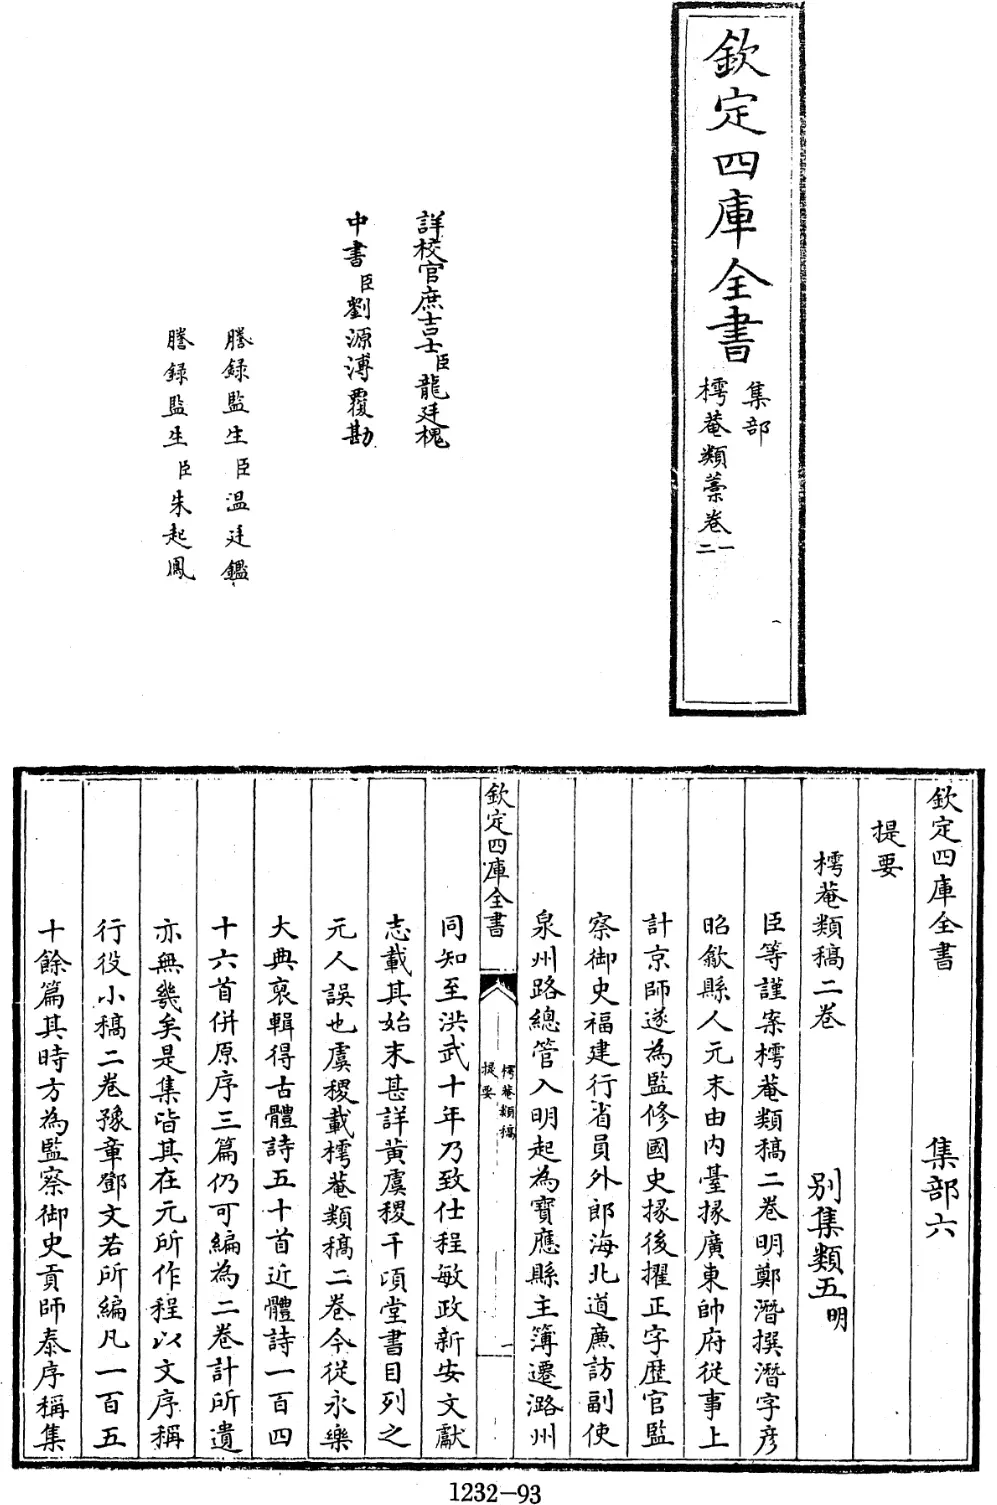 欽定四庫全書
集部
樗菴類藁卷一
二
詳校官庶吉士臣龍廷槐
中書臣劉源溥覆勘
謄録監生臣温廷鑑
謄録監生臣朱起鳳
欽定四庫全書 集部六
提要
樗菴類稿二卷 别集類五明
臣等謹案樗菴類稿二卷明鄭潛撰潛字彦
昭歙縣人元末由内臺掾廣東帥府從事上
計京師遂為監修國史掾後擢正字歴官監
察御史福建行省員外郎海北道廉訪副使
泉州路總管入明起為寳應縣主簿遷潞州
欽定四庫全書
樗菴類稿
提要
一
同知至洪武十年乃致仕程敏政新安文獻
志載其始末甚詳黄虞稷千頃堂書目列之
元人誤也虞稷載樗菴類稿二卷今從永樂
大典裒輯得古體詩五十首近體詩一百四
十六首併原序三篇仍可編為二卷計所遺
亦無幾矣是集皆其在元所作程以文序稱
行役小稿二卷豫章鄧文若所編凡一百五
十餘篇其時方為監察御史貢師泰序稱集
1232-93